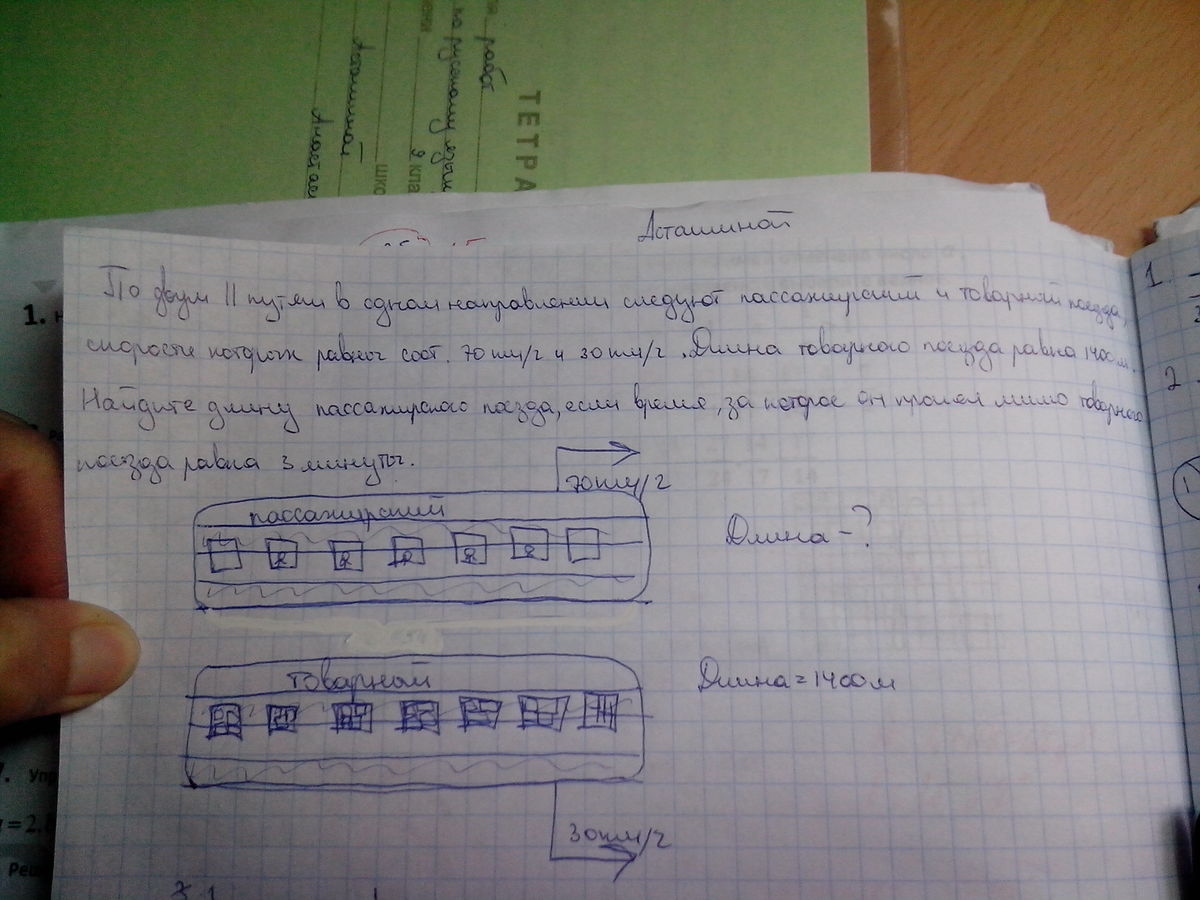 ТЕТРА
работ
по русскому языку
9 кла
шко
Асташиной
Анаст
Асташиной
По двум || путям в одном направлении следуют пассажирский и товарный поезда,
скорости которых равны соот. 70 км/г и 30 км/г. Длина товарного поезда равна 1400 м.
Найдите длину пассажирского поезда, если время, за которое он прошёл мимо товарного
поезда равна 3 минуты.
70 км/г
пассажирский
Длина - ?
товарный
Длина = 1400 м
30 км/г
1.
1
2
7. Упр
= 2.
Реш